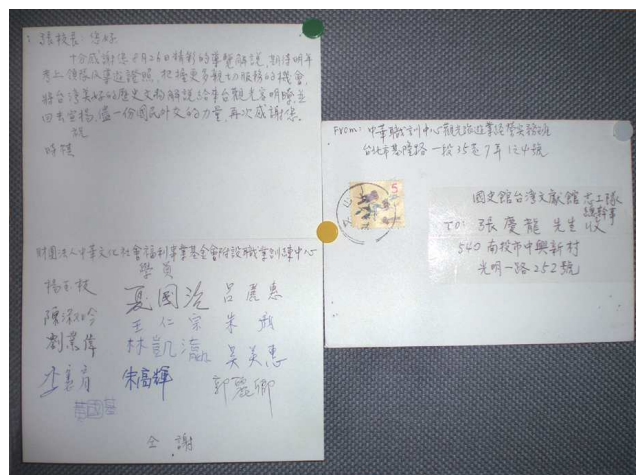 張校長 您好
十分感謝您8月26日精彩的導覽解說,期待明年
考上領隊及導遊證照,把握更多親切服務的機會,
將台灣美好的歷史文物解說給來台觀光客明瞭,並
回去宣揚,盡一份國民外交的力量,再次感謝您.
祝
時祺
財團法人中華文化社會福利事業基金會附設職業訓練中心
學員
夏國 呂麗惠
王仁宗 朱
劉業偉 林凱瀛 吳美惠
朱高輝 郭麗卿
仝 謝
From: 中華職訓中心觀光旅遊業經營實務班
台北市基隆路一段35巷7弄1之4號
5
國史館台灣文獻館 志工隊
總幹事
TO: 張慶龍 先生 收
540 南投市中興新村
光明一路252號